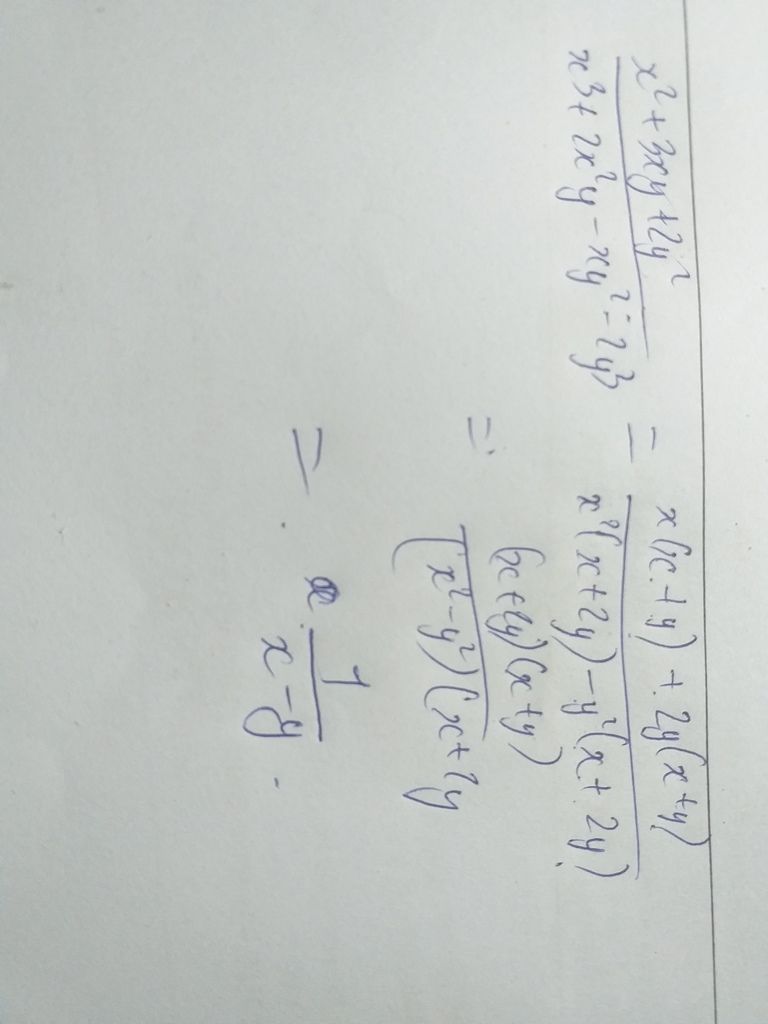 x² + 3xy + 2y² / x³ + 2x²y - xy² - 2y³ = x(x + y) + 2y(x + y) / x²(x + 2y) - y²(x + 2y)
= (x + 2y)(x + y) / (x² - y²)(x + 2y
= 1 / x - y .